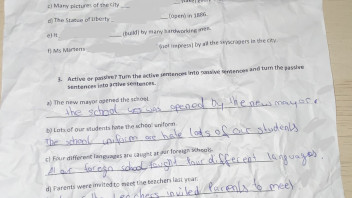 c) Many pictures of the city
d) The Statue of Liberty (open) in 1886.
e) It (build) by many hardworking men.
f) Ms Martens (not impress) by all the skyscrapers in the city.
3. Active or passive? Turn the active sentences into passive sentences and turn the passive
sentences into active sentences.
a) The new mayor opened the school.
the school was opened by the new mayor.
b) Lots of our students hate the school uniform.
The school uniform are hate lots of our students
c) Four different languages are taught at our foreign schools.
foreign school taught four different languages
d) Parents were invited to meet the teachers last year.
teachers invited Parents to meet